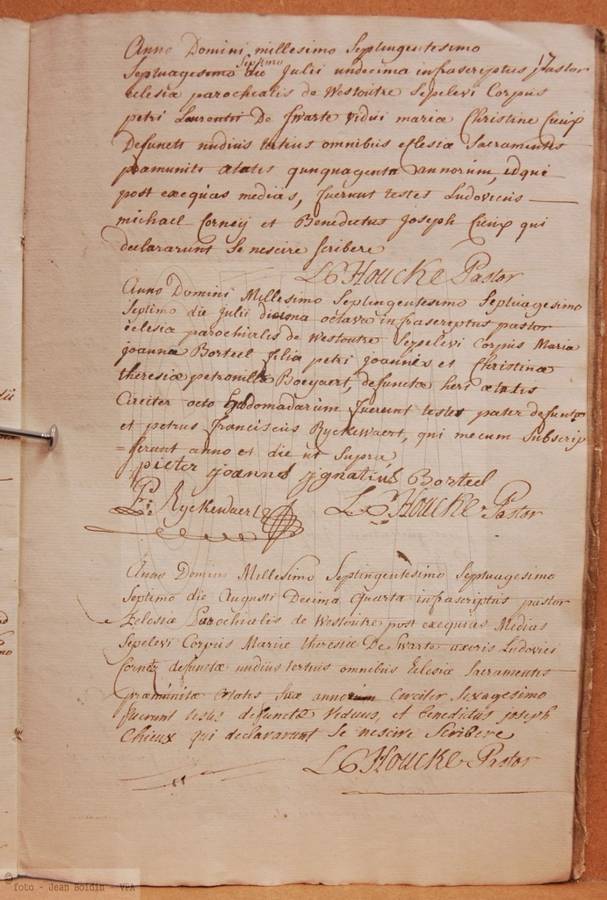 Anno Domini millesimo Septingentesimo
Septuagesimo Septimo die Julii undecima infrascriptus Pastor
Eclesiæ parochialis de Westoutre Sepelevi Corpus
petri Laurentii De Swarte vidui mariæ Christinæ Creux
Defuncti nudius tertius omnibus Eclesiæ Sacramentis
præmuniti ætatis qunquaginta annorum, idqui
post exequias medias, fuerunt testes Ludovicus
michael Corneij et Benedictus Joseph Creux qui
declararunt se nescire scribere
LC Houcke Pastor
Anno Domini Millesimo Septingentesimo Septuagesimo
Septimo die Julii decima octava infrascriptus pastor
eclesiæ parochialis de Westoutre Sepelevi Corpus Maria
joanna Borteel filia petri joannis et Christinæ
theresiæ petronillæ Boeyaert, defunctæ heri ætatis
Circiter octo hebdomadarum fuerunt testes pater defunctæ
et petrus franciscus Ryckewaert, qui mecum Subscrip
=serunt anno et die ut Supra
pieter joannes ygnatius Borteel
P: Ryckewaert
LC Houcke Pastor
Anno Domini Millesimo Septingentesimo Septuagesimo
Septimo die Augusti Decima quarta infrascriptus pastor
Eclesiæ Parochialis de Westoutre post exequias Medias
Sepelevi Corpus Mariæ theresiæ De Swarte uxoris Ludovici
defunctæ nudius tertius omnibus Eclesiæ Sacramentis
præmunitæ ætatis suæ annorum Circiter Sexagesimo
fuerunt testes defunctæ viduus, et benedictus joseph
Chieux qui declararunt se nescire scribere
LC Houcke Pastor
© foto - Jean Boldin - VPA